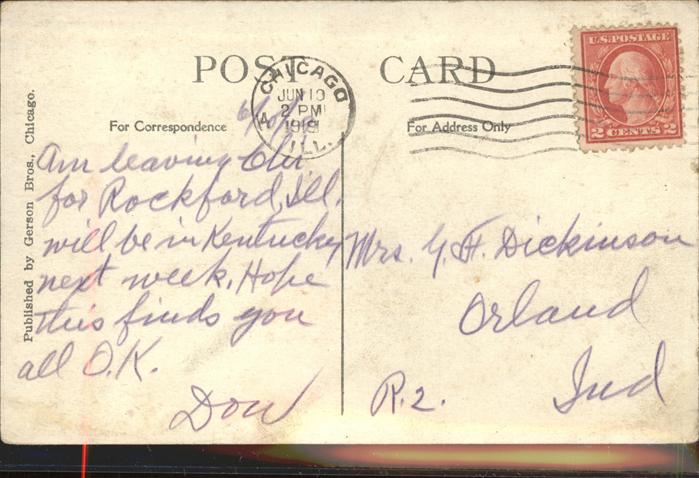 POST CARD
CHICAGO
JUN 10
2 PM
1919
ILL.
U.S. POSTAGE
2 CENTS 2
For Correspondence
For Address Only
6/10/19
Am leaving Chi
for Rockford, Ill.
will be in Kentucky
next week. Hope
this finds you
all O.K.
Don
Mrs. G. H. Dickinson
Orland
R.2. Ind
Published by Gerson Bros., Chicago.